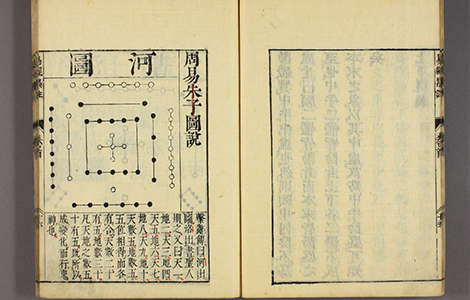 周易朱子圖說
河圖
繫辭傳曰河出
圖洛出書聖人
則之又曰天一
地二天三地四
天五地六天七
地八天九地十
天數五地數五
五位相得而各
有合天數二十
有五地數三十
凡天地之數五
十有五此所以
成變化而行鬼
神也